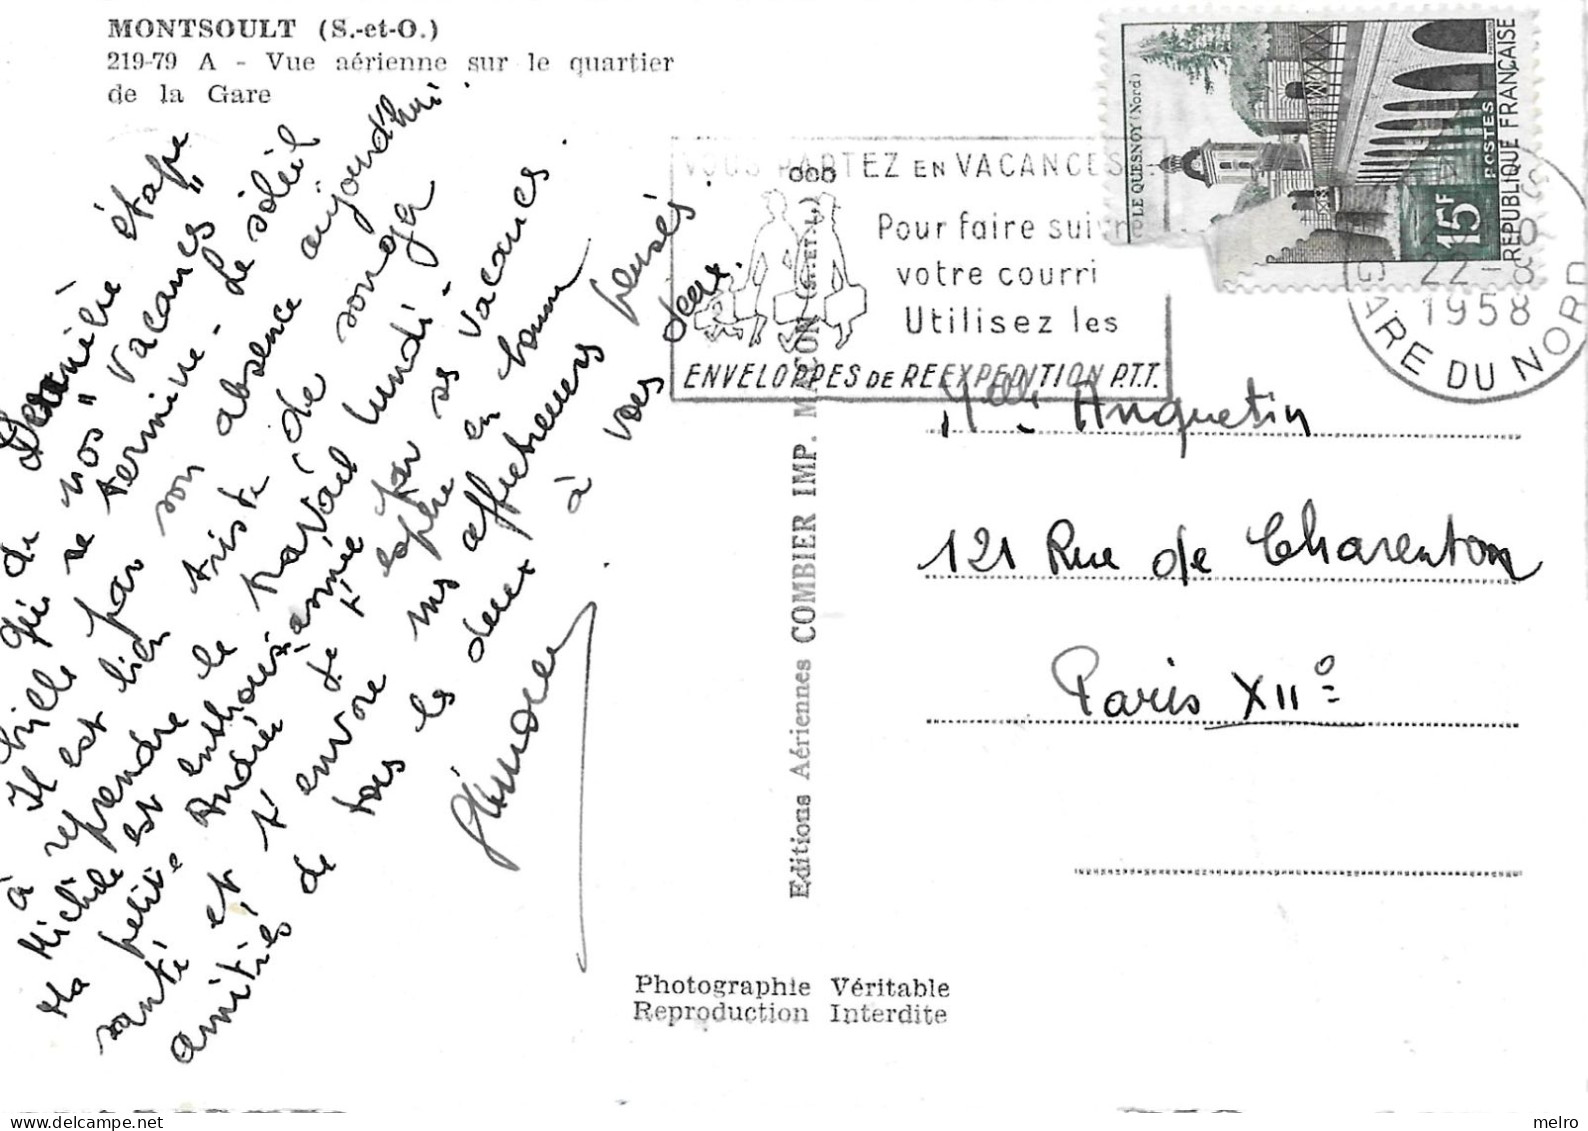 MONTSOULT (S.-et-O.)
219-79 A - Vue aérienne sur le quartier
de la Gare
Dernière étape
de nos "vacances"
qui se termine - Le soleil
brille par son absence aujourd'hui.
Il est bien triste de songer
à reprendre le travail lundi -
Michèle est enthousiasmée par ses vacances.
Ma petite Andrée je t'espère en bonne
santé et t'envoie mes affectueuses pensées.
amitiés de tous les deux à vous deux.
VOUS PARTEZ EN VACANCES
Pour faire suivre
votre courri
Utilisez les
ENVELOPPES DE REEXPEDITION P.T.T.
LE QUESNOY (Nord)
15F
POSTES
REPUBLIQUE FRANÇAISE
22-8
1958
GARE DU NORD
Melle Anquetin
121 Rue de Charenton
Paris XIIe
Editions Aériennes COMBIER IMP. MACON (S.-ET-L.)
Photographie Véritable
Reproduction Interdite
melro